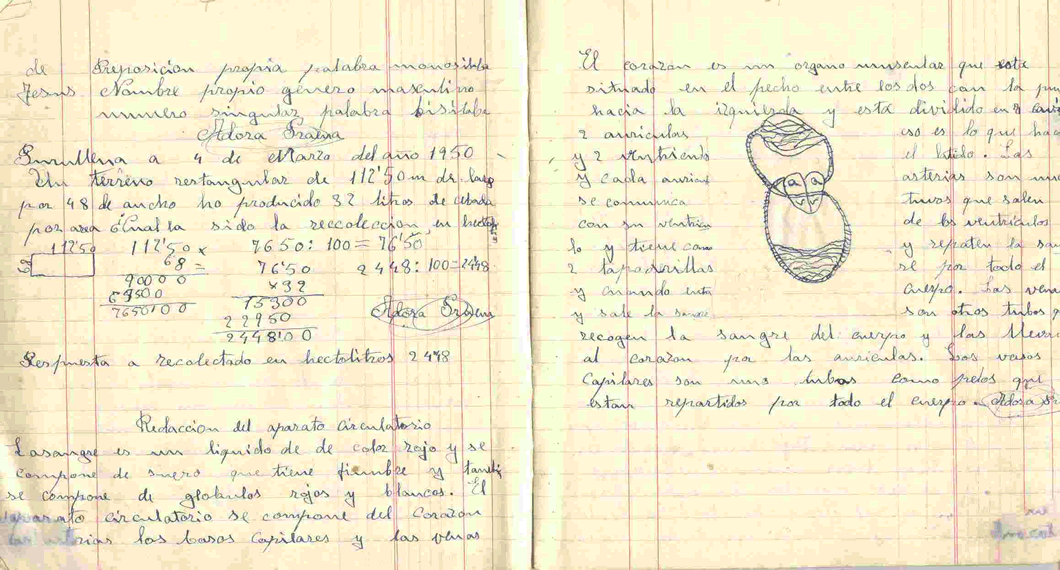 de Preposicion propia palabra monosilaba
Jesus Nombre propio género masculino
numero singular palabra bisilaba
Adora
a 4 de Marzo del año 1950
Un terreno restangular de 112'50 m de largo
por 48 de ancho ho producido 32 litros de cebada
por area ¿Cual a sido la reccoleccion en
112'50 112'50 x 7650: 100 = 76'50
68 68 = 76'50 2448: 100=2448
90000 x32
67500 15300
7650'00 22950
2448'00
Adora
Respuesta a recolectado en hectolitros 2448
Redaccion del aparato circulatorio
La sangre es un liquido de de color rojo y se
compone de suero que tiene
se compone de globulos rojos y blancos. El
aparato circulatorio se compone del Corazon
las los basos Capilares y las venas
El corazon es un organo muscular que esta
situado en el pecho entre los dos con la
hacia la izquierda y esta dividido en
2 auriculas eso es lo que
y 2 el latido. Las
y cada arterias son
se comunica que salen
con su de los ventriculos
lo y tiene como y repaten la
2 tapaderillas se por todo el
y cuando cuerpo. Las
y sale la son otros tubos
recogen la sangre del cuerpo y las
al corazon por las auriculas. Los vasos
Capilares son unos tubos como pelos que
estan repartidos por todo el cuerpo. Adora